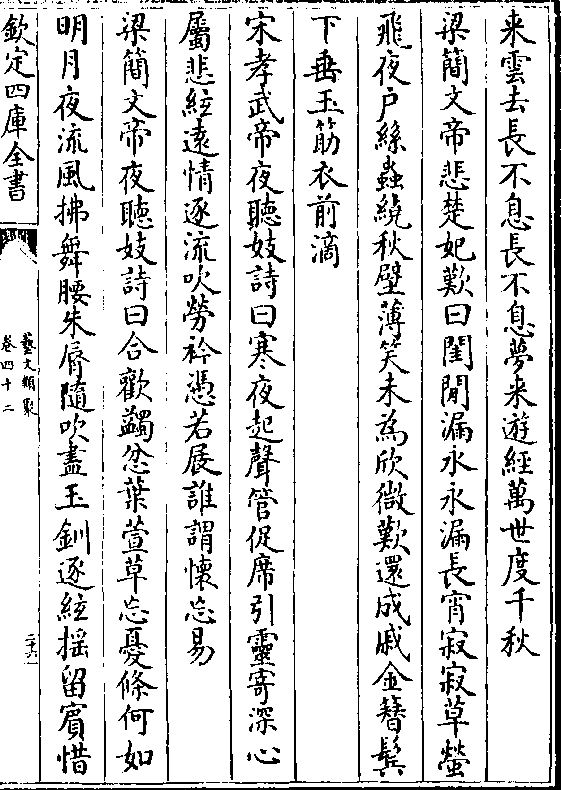 来雲去長不息長不息夢来遊經萬世度千秋
梁簡文帝悲楚妃歎曰閨閒漏永永漏長宵寂寂草螢
飛夜户絲蟲繞秋壁薄笑未為欣微歎還成戚金簪鬂
下垂玉筋衣前滴
宋孝武帝夜聽妓詩曰寒夜起聲管促席引靈寄深心
屬悲絃逺情逐流吹勞衿憑若展誰謂懷忘易
梁簡文帝夜聽妓詩曰合歡蠲忿葉萱草忘憂條何如
明月夜流風拂舞腰朱唇隨吹盡玉釧逐絃揺留賓惜
欽定四庫全書
藝文類聚
卷四十二
二十六